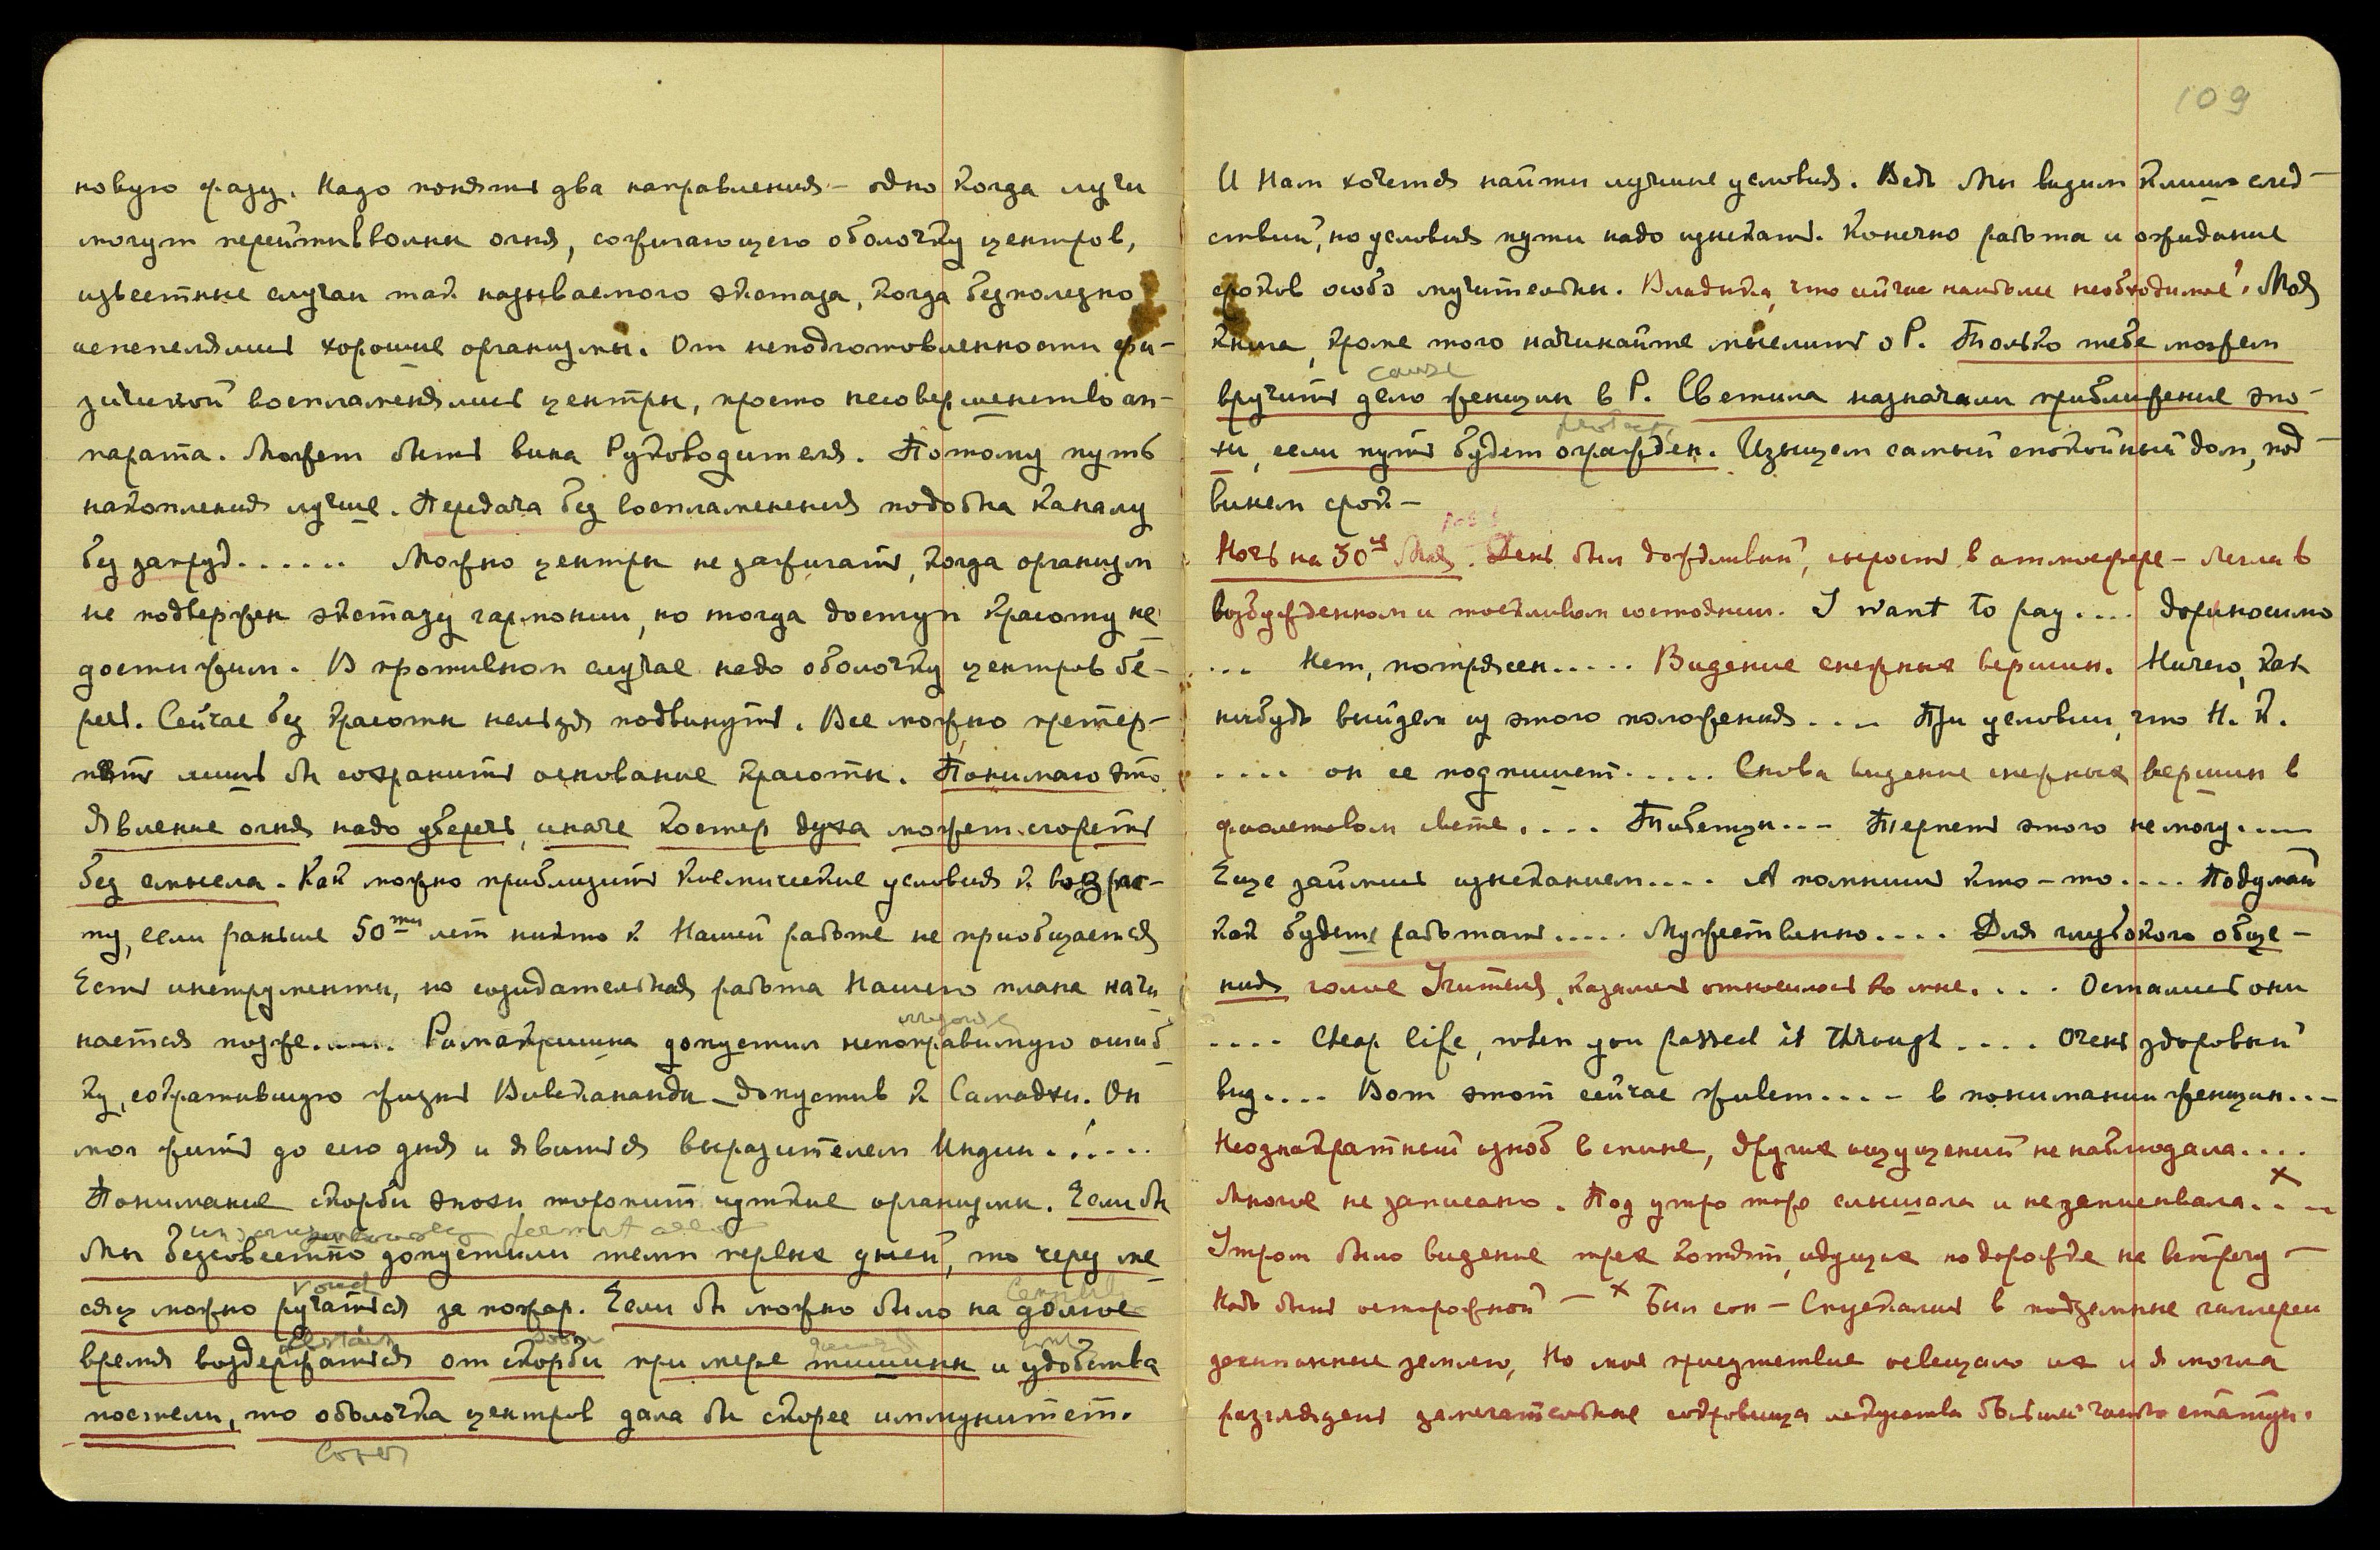 новую фазу. Надо понять два направления – одно когда лучи
могут перейти в волны огня, сожигающего оболочку центров,
известные случаи так называемого экстаза, когда безполезно
испепелялись хорошие организмы. От неподготовленности фи-
зической воспламенялись центры, просто несовершенство ап-
парата. Может быть вина Руководителя. Потому путь
накопления лучше. Передача без воспламенения подобна каналу
без запруд...... Можно центры не зажигать, когда организм
не подвержен экстазу гармонии, но тогда доступ красоты не
достижим. В противном случае надо оболочку центров бе-
речь. Сейчас без красоты нельзя подвинуть. Все можно претер-
петь лишь бы сохранить основание красоты. Понимаю это
явление огня надо уберечь, иначе костер духа может сгореть
без смысла. Как можно приблизить космические условия к возрас-
ту, если раньше 50ти лет никто к Нашей работе не приобщается
Есть инструменты, но созидательная работа Нашего плана начи
нается позже..... Рамакришна допустил непоправимую ошиб
ку, сократившую жизнь Вивекананды – допустив к Самадхи. Он
мог жить до сего дня и явиться выразителем Индии......
Понимание скорби эпохи торопит чуткие организмы. Если бы
Мы безсовестно допустили темп первых дней, то через ме
vouch
сяц можно ручаться за пожар. Если бы можно было на долгое
время воздержаться от скорби при мере тишины и удобства
постели, то оболочка центров дала бы скорее иммунитет.
cover
109
И Нам хочется найти лучшие условия. Ведь Мы видим клише след-
ствий, но условия пути надо изыскать. Конечно работа и ожидание
сроков особо мучительны. Владыка, что сейчас наиболее необходимое? Моя
Книга, кроме того начинайте мыслить о Р. Только тебе можем
cause
вручить дело женщин в Р. Светила назначали приближение эпо-
protect
хи, если путь будет огражден. Изыщем самый спокойный дом, под-
винем срок –
Ночь на 30ое Мая. День был дождливый, сырость в атмосфере – легла в
возбужденном и тоскливом состоянии. I want to pay.... Дориносимо
... Нет, потрясен..... Видение снежных вершин. Ничего, как
нибудь выйдем из этого положения.... При условии, что Н. К.
.... он ее подпишет..... Снова видение снежных вершин в
фиолетовом свете.... Тибетцы... Терпеть этого не могу....
Еще займись изысканием.... А помнишь кто-то.... Подумай
как будете работать..... Мужественно.... Для глубокого обще-
ния голос Учителя, казалось относилось ко мне.... Остались они
.... Cheap life, when you passed it through.... Очень здоровый
вид.... Вот этот сейчас живет.... в понимании женщин...
Неоднократный озноб в спине, других ощущений не наблюдала....
Многое не записано. Под утро тоже слышала и не записывала. x ...
Утром было видение трех котят, идущих по дорожке не встречу –
Надо быть осторожной – x Был сон – Спускались в подземные галлереи
засыпанные землею, Но мое присутствие освещало их и я могла
разглядеть замечательные сокровища искусства большей частью статуи.